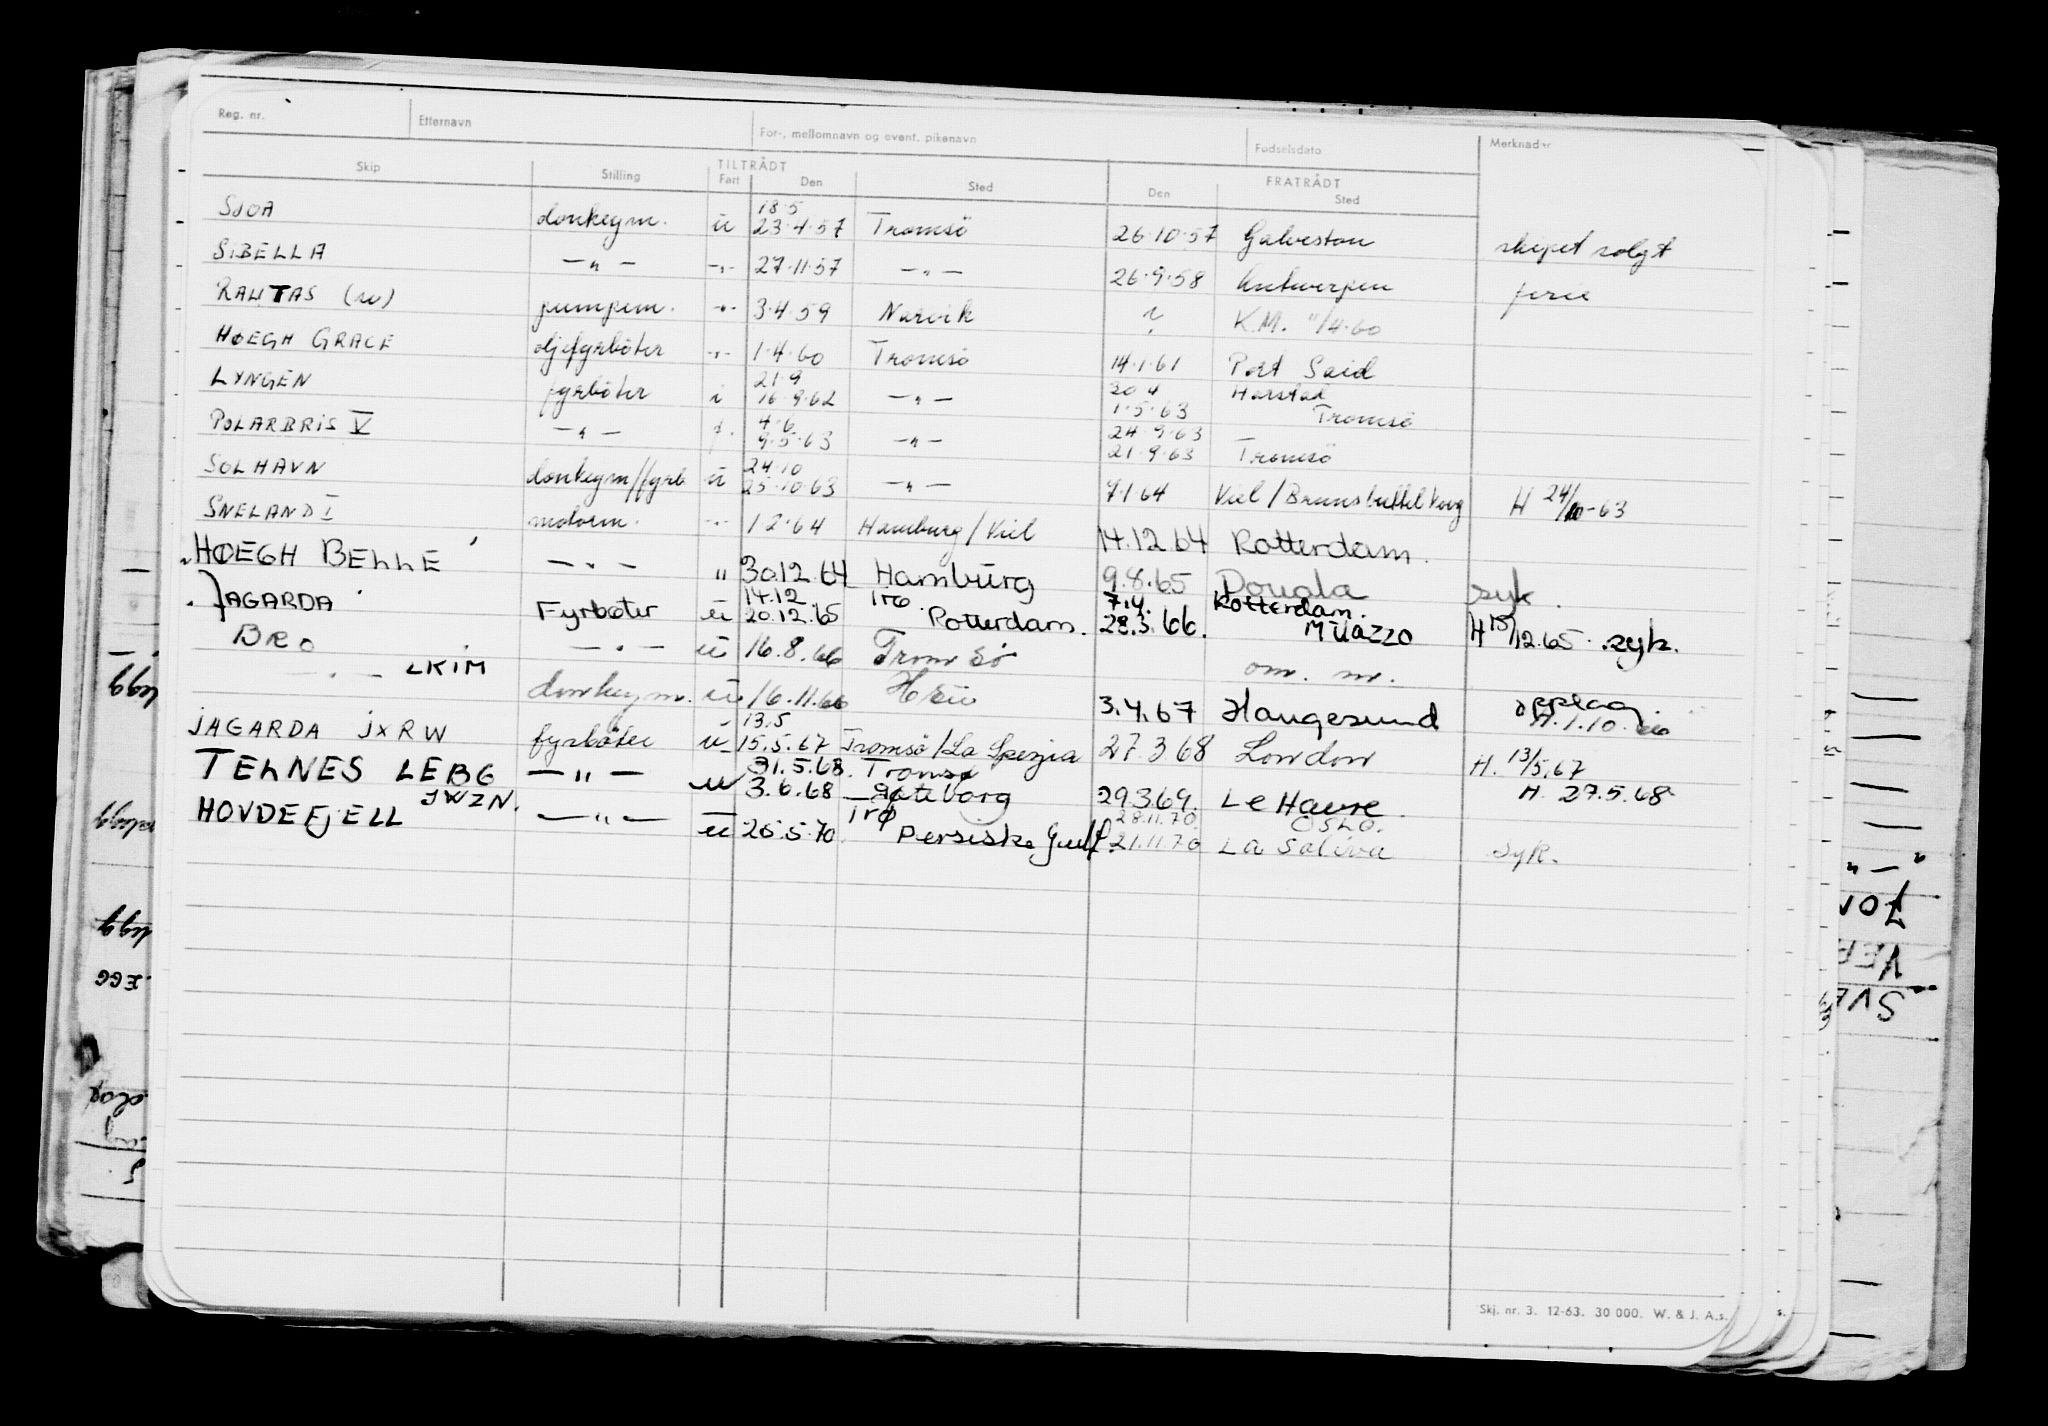 Reg. nr. Etternavn For-, mellomnavn og event. pikenavn Fødselsdato Merknader
TILTRÅDT FRATRÅDT
Skip Stilling Fart Den Sted Den Sted
18.5
SJOA donkeym. u 23.4.57 Tromsö 26.10.57 Galveston skipet solgt
SIBELLA —"— -"- 27.11.57 —"— 26.9.58 Antwerpen ferie
RAUTAS (w) pumpem. -"- 3.4.59 Narvik ? K.M. "/4.60
HØEGH GRACE oljefyrböter -"- 1.4.60 Tromsö 14.1.61 Port Said
21.9 30.4 Harstad
LYNGEN fyrböter i 16.9.62 —"— 1.5.63 Tromsö
4.6 24.9.63
POLARBRIS V —"— f. 9.5.63 —"— 21.9.63 Tromsö
24.10
SOLHAVN donkeym/fyrb u 25.10.63 —"— 9.1.64 Kiel/Brunsbuttelkoog H 24/10-63
SNELAND I motorm. -"- 1.2.64 Hamburg/Kiel 14.12.64 Rotterdam.
HØEGH BELLE —"— " 30.12.64 Hamburg 9.8.65 Douala syk.
14.12 Trø 7.4. Rotterdam.
JAGARDA Fyrbøter u 20.12.65 Rotterdam. 28.3.66. Milazzo H 15/12.65. syk.
BRO —"— u 16.8.66 Tromsö om. m.
—"— LKIM donkeym. u 16.11.66 3.4.67 Haugesund opplag. H.1.10.66
13.5
JAGARDA JXRW fyrböter u 15.5.67 Tromsö/La Spezia 27.3.68 London H. 13/5.67
31.5.68. Tromsø
TELNES LEBG —"— u 3.6.68 Gøteborg 29.3.69. Le Havre. H. 27.5.68
JWZN. Trø 28.11.70. OSLO.
HOVDEFJELL —"— u 26.5.70 Persiske Gulf. 21.11.70 La Saliva syk.
Skj. nr. 3. 12-63. 30 000. W. & J. A.s.